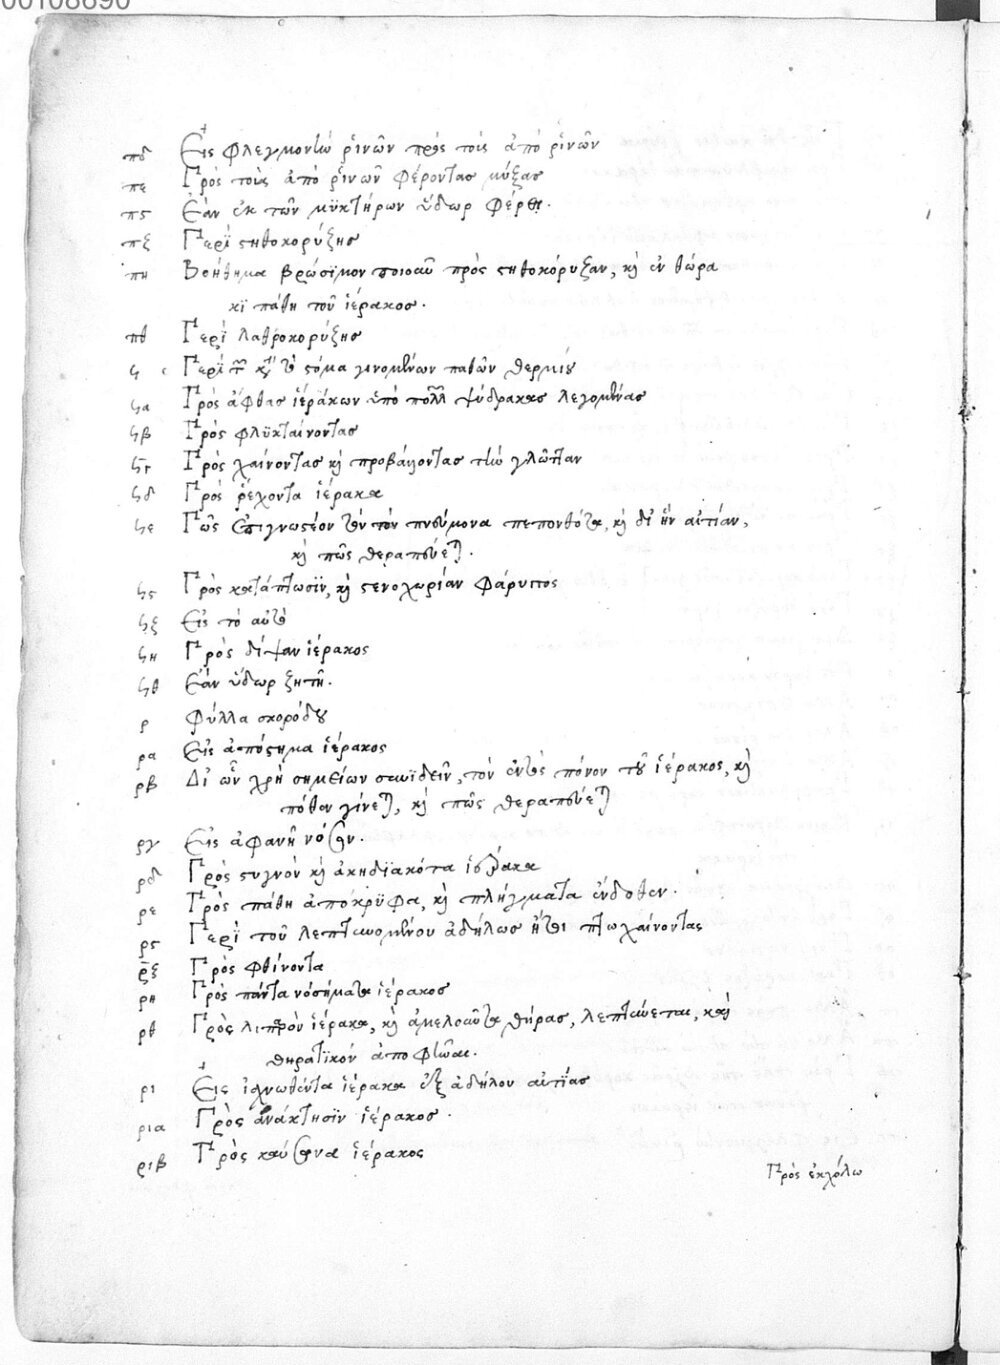 00108690
πδ Εἰς φλεγμονὴν ῥινῶν πρὸς τοῖς ἀπὸ ῥινῶν
πε Πρὸς τοὺς ἀπὸ ῥινῶν φέροντας μύξας
πς Ἐὰν ἐκ τῶν μϋκτήρων ὕδωρ φέρῃ.
πξ Περὶ στηθοκορύξης
πη Βοήθημα βρώσϊμον ποιοῦν πρὸς στηθοκόρυξαν, καὶ ἐν θώρα
κϊ πάθη τοῦ ἱέρακος.
πθ Περὶ λαθροκορύξης
ϟ Περὶ τῶν κατὰ τὸ στόμα γινομένων παθῶν θερμοῦ
ϟα Πρὸς ἄφθας ἱεράκων ὑπὸ πολλῶν ψύδρακας λεγομένας
ϟβ Πρὸς φλϋκταίνοντας
ϟγ Πρὸς χαίνοντας καὶ προβάλλοντας τὴν γλῶτταν
ϟδ Πρὸς ῥέχοντα ἱέρακα
ϟε Πῶς ἐπιγνωστέον τὸν τὸν πνεύμονα πεπονθότα, καὶ δι' ἣν αἰτίαν,
καὶ πῶς θεραπεύεται.
ϟς Πρὸς κατάπτωσϊν, καὶ στενοχωρίαν φάρυγγος
ϟξ Εἰς τὸ αὐτὸ
ϟη Πρὸς δίψαν ἱέρακος
ϟθ Ἐὰν ὕδωρ ζητῇ.
ρ Φύλλα σκορόδου
ρα Εἰς ἀπόστημα ἱέρακος
ρβ Δι' ὧν χρὴ σημείων συνϊδεῖν, τὸν ἐντὸς πόνον τοῦ ἱέρακος, καὶ
πόθεν γίνεται, καὶ πῶς θεραπεύεται
ργ Εἰς ἀφανῆ νόσον.
ρδ Πρὸς στυγνὸν καὶ ἀκηδϊακότα ἱέρακα
ρε Πρὸς πάθη ἀπόκρϋφα, καὶ πλήγματα ἔνδοθεν.
ρς Περὶ τοῦ λεπτυνομένου ἀδήλως ἤτοι πτωχαίνοντας
ρξ Πρὸς φθίνοντα
ρη Πρὸς πάντα νόσήματα ἱέρακος
ρθ Πρὸς λιπαρὸν ἱέρακα, καὶ ἀμελοῦντα θήρας, λεπτύνεται, καὶ
θηρατϊκὸν ἀποφῆναι.
ρι Εἰς ἰχνωθέντα ἱέρακα ἐξ ἀδήλου αἰτίας
ρια Πρὸς ἀνάκτησϊν ἱέρακος.
ριβ Πρὸς καύσωνα ἱέρακος
Πρὸς ἐκχόλω